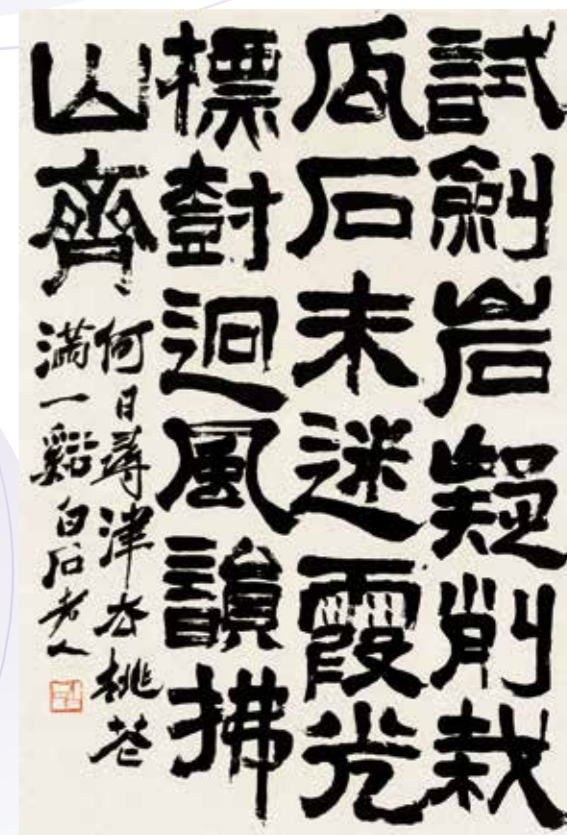 試劍岩疑削栽
瓜石未迷霞光
標尌逈風韻拂
山齊
何日尋津去桃花
滿一谿白石老人